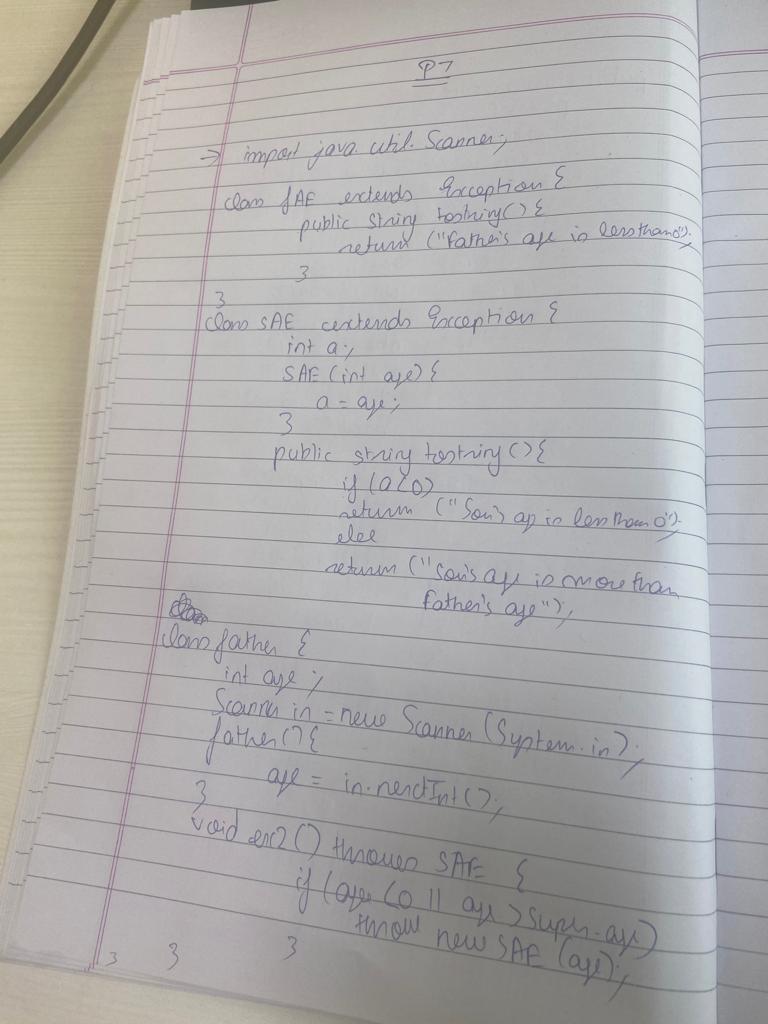 P7
→ import java util. Scanner;
class fAE extends Exception {
public String tostring() {
return ("Father's age is less than 0");
}
}
class SAE extends Exception {
int a;
SAE (int age) {
a = age;
}
public string tostring () {
if (a<0)
return ("Son's age is less than 0");
else
return ("Son's age is more than
Father's age");
class father {
int age ;
Scanner in = new Scanner (System.in);
father () {
age = in.nextInt ();
}
void ex2 () throws SAE {
if (age <0 || age > super.age)
throw new SAE (age);
} } }